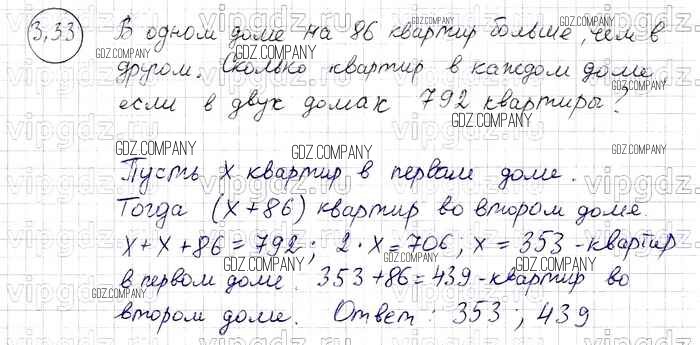 3,33 В одном доме на 86 квартир больше, чем в
другом. Сколько квартир в каждом доме,
если в двух домах 792 квартиры?
Пусть x квартир в первом доме.
Тогда (x+86) квартир во втором доме.
x+x+86=792; 2·x=706; x=353 -квартир
в первом доме. 353+86=439-квартир во
втором доме. Ответ: 353; 439
GDZ.COMPANY
vipgdz.ru